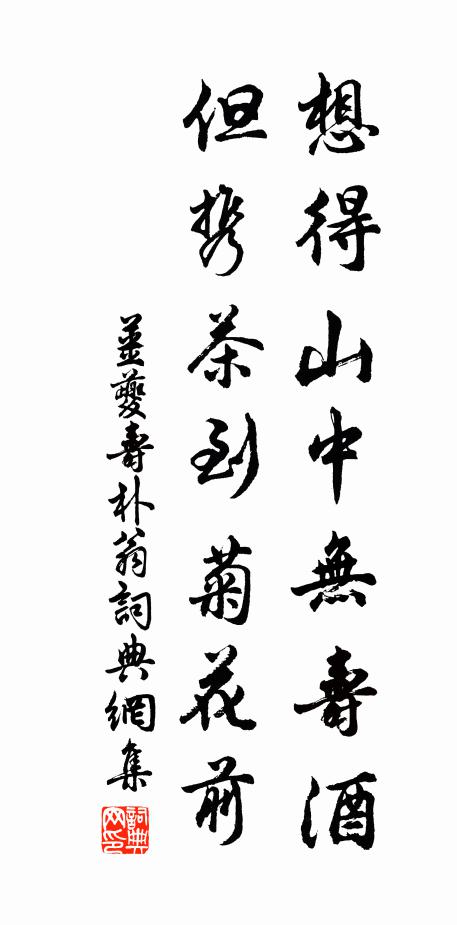 想得山中無壽酒
但携茶到菊花前
姜夔壽朴翁詞典網集
詞典网印